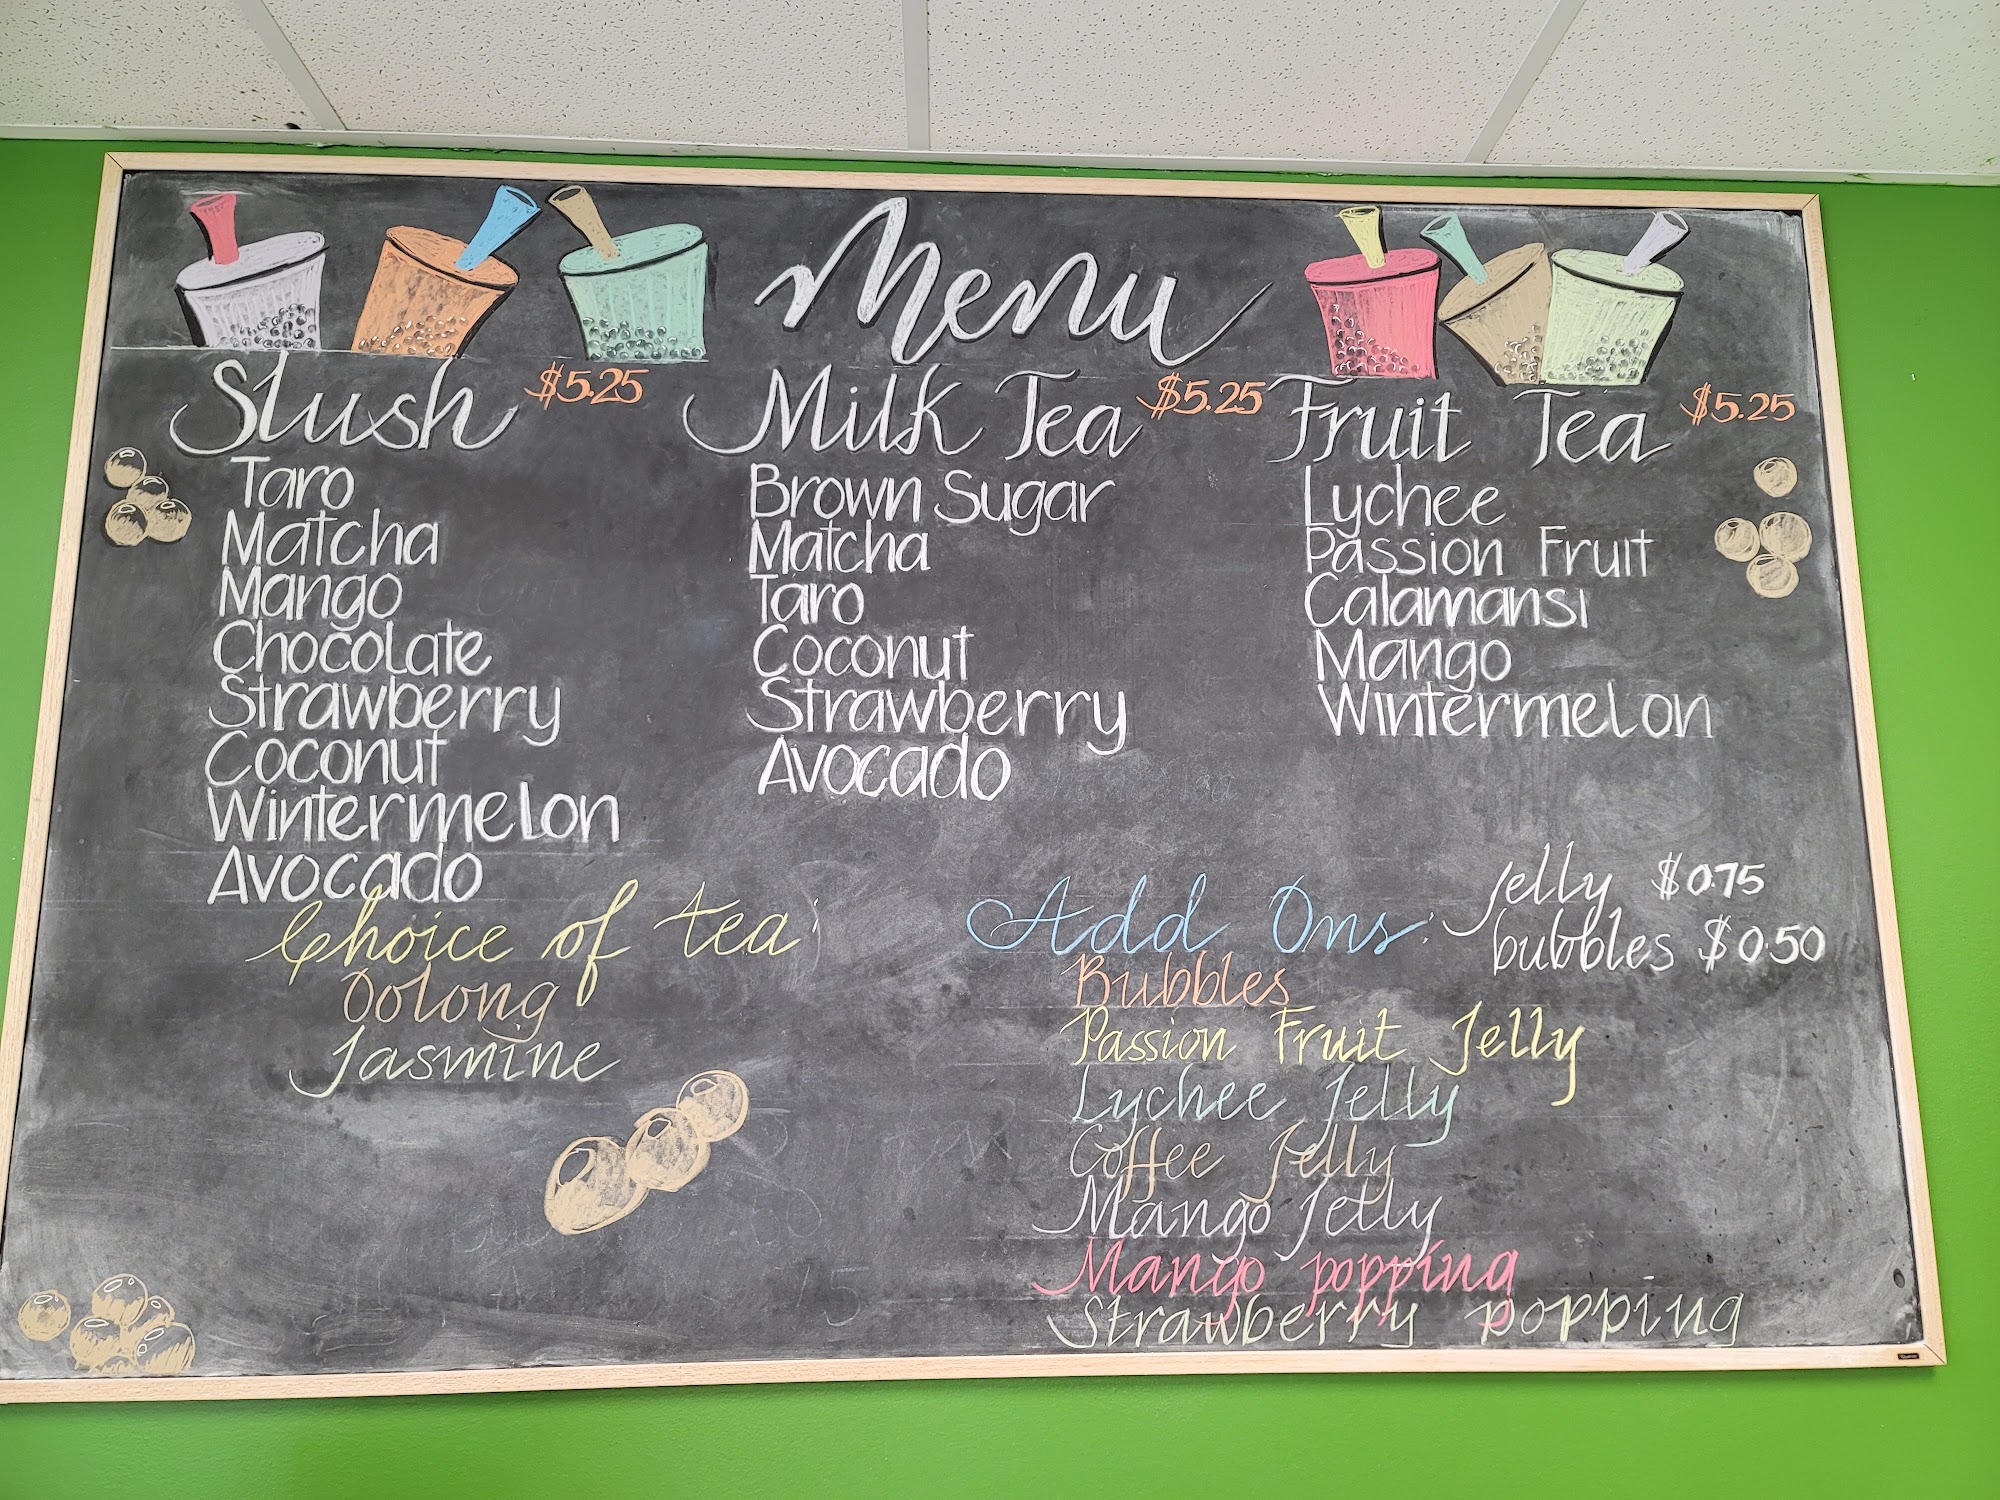 Menu
Slush $5.25
Taro
Matcha
Mango
Chocolate
Strawberry
Coconut
Wintermelon
Avocado
Milk Tea $5.25
Brown Sugar
Matcha
Taro
Coconut
Strawberry
Avocado
Fruit Tea $5.25
Lychee
Passion Fruit
Calamansi
Mango
Wintermelon
Choice of tea:
Oolong
Jasmine
Add Ons:
Jelly $0.75
bubbles $0.50
Bubbles
Passion Fruit Jelly
Lychee Jelly
Coffee Jelly
Mango Jelly
Mango popping
Strawberry popping